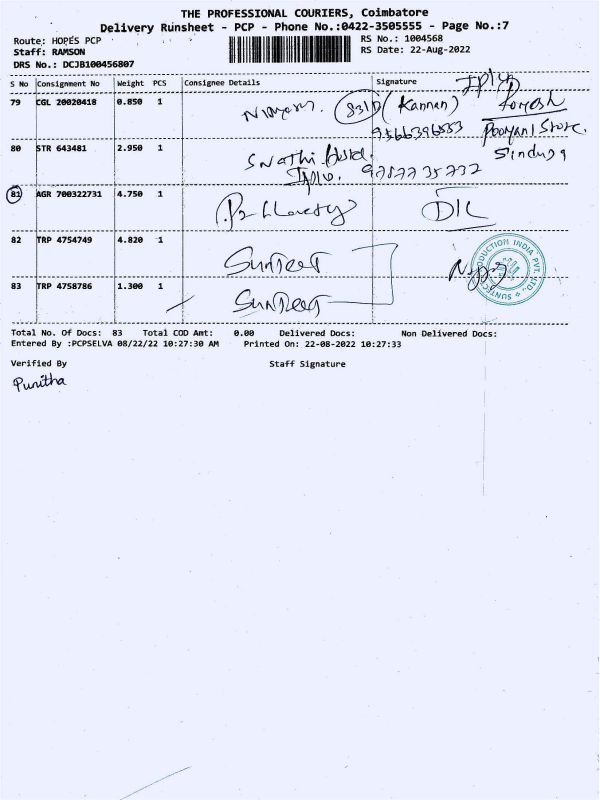 THE PROFESSIONAL COURIERS, Coimbatore
Delivery Runsheet - PCP - Phone No.:0422-3505555 - Page No.:7
Route: HOPES PCP
RS No.: 1004568
Staff: RAMSON
RS Date: 22-Aug-2022
DRS No.: DCJB100456807
S No Consignment No Weight PCS Consignee Details Signature
79 CGL 20020418 0.850 1 831D (Kannan)
9566396583
Store.
80 STR 643481 2.950 1 Swathi
Sinduja
9787735732
81 AGR 700322731 4.750 1
82 TRP 4754749 4.820 1 Suntect
SUNTECT PRODUCTION INDIA PVT. LTD.
83 TRP 4758786 1.300 1 Suntect
Total No. Of Docs: 83 Total COD Amt: 0.00 Delivered Docs: Non Delivered Docs:
Entered By :PCPSELVA 08/22/22 10:27:30 AM Printed On: 22-08-2022 10:27:33
Verified By Staff Signature
Punitha